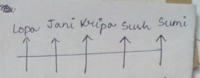 Lopa Jani Kripa Sush Sumi